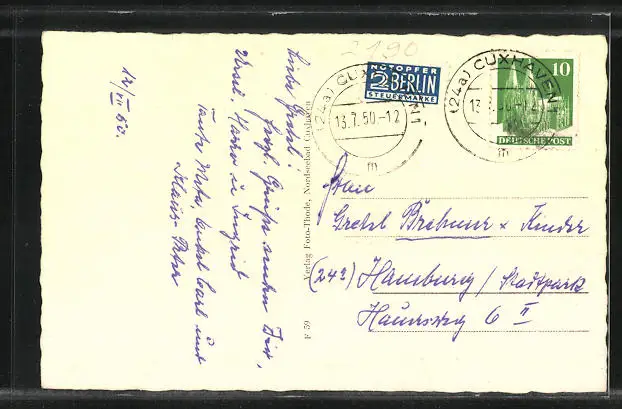 12/VII 50.
Liebe Gretel!
Herzl. Grüße senden Dir,
Harro u. Ingrid
Tante Meta, Onkel Carl und
Klaus-Peter
F 59 Verlag Foto-Thode, Nordseebad Cuxhaven
2190
(24a) CUXHAVEN
13.7.50-12
m
NOTOPFER
2 BERLIN
STEUERMARKE
(24a) CUXHAVEN
13.7.50-12
m
10
DEUTSCHE POST
Frau
Gretel Brehmer & Kinder
(24a) Hamburg / Stadtpark
6 II